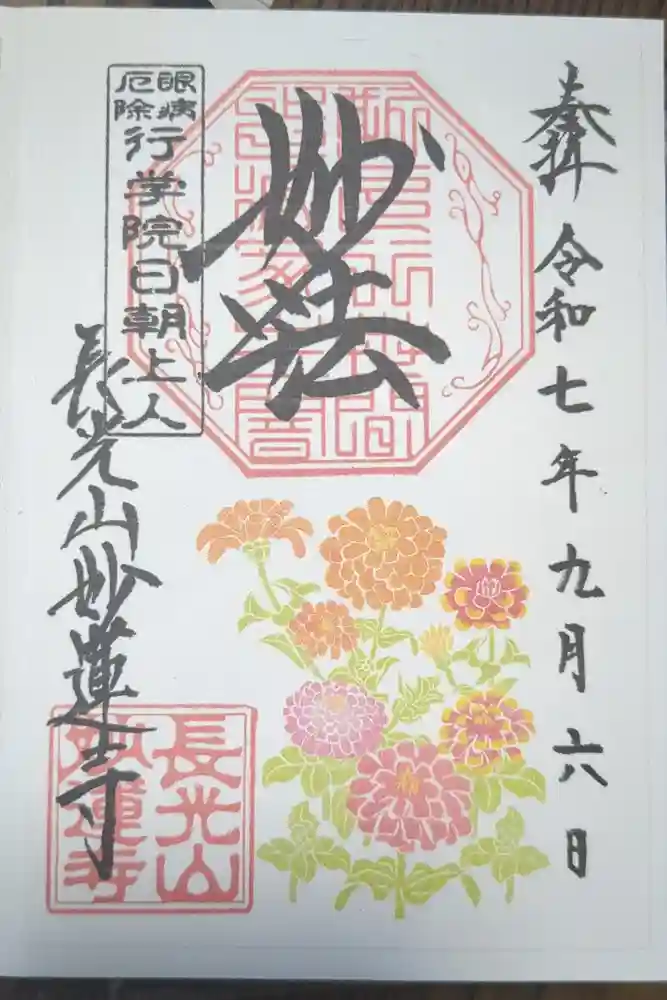 奉拝 令和七年九月六日
妙法
眼病
厄除
行学院日朝上人
長光山妙蓮寺
長光山
妙蓮寺